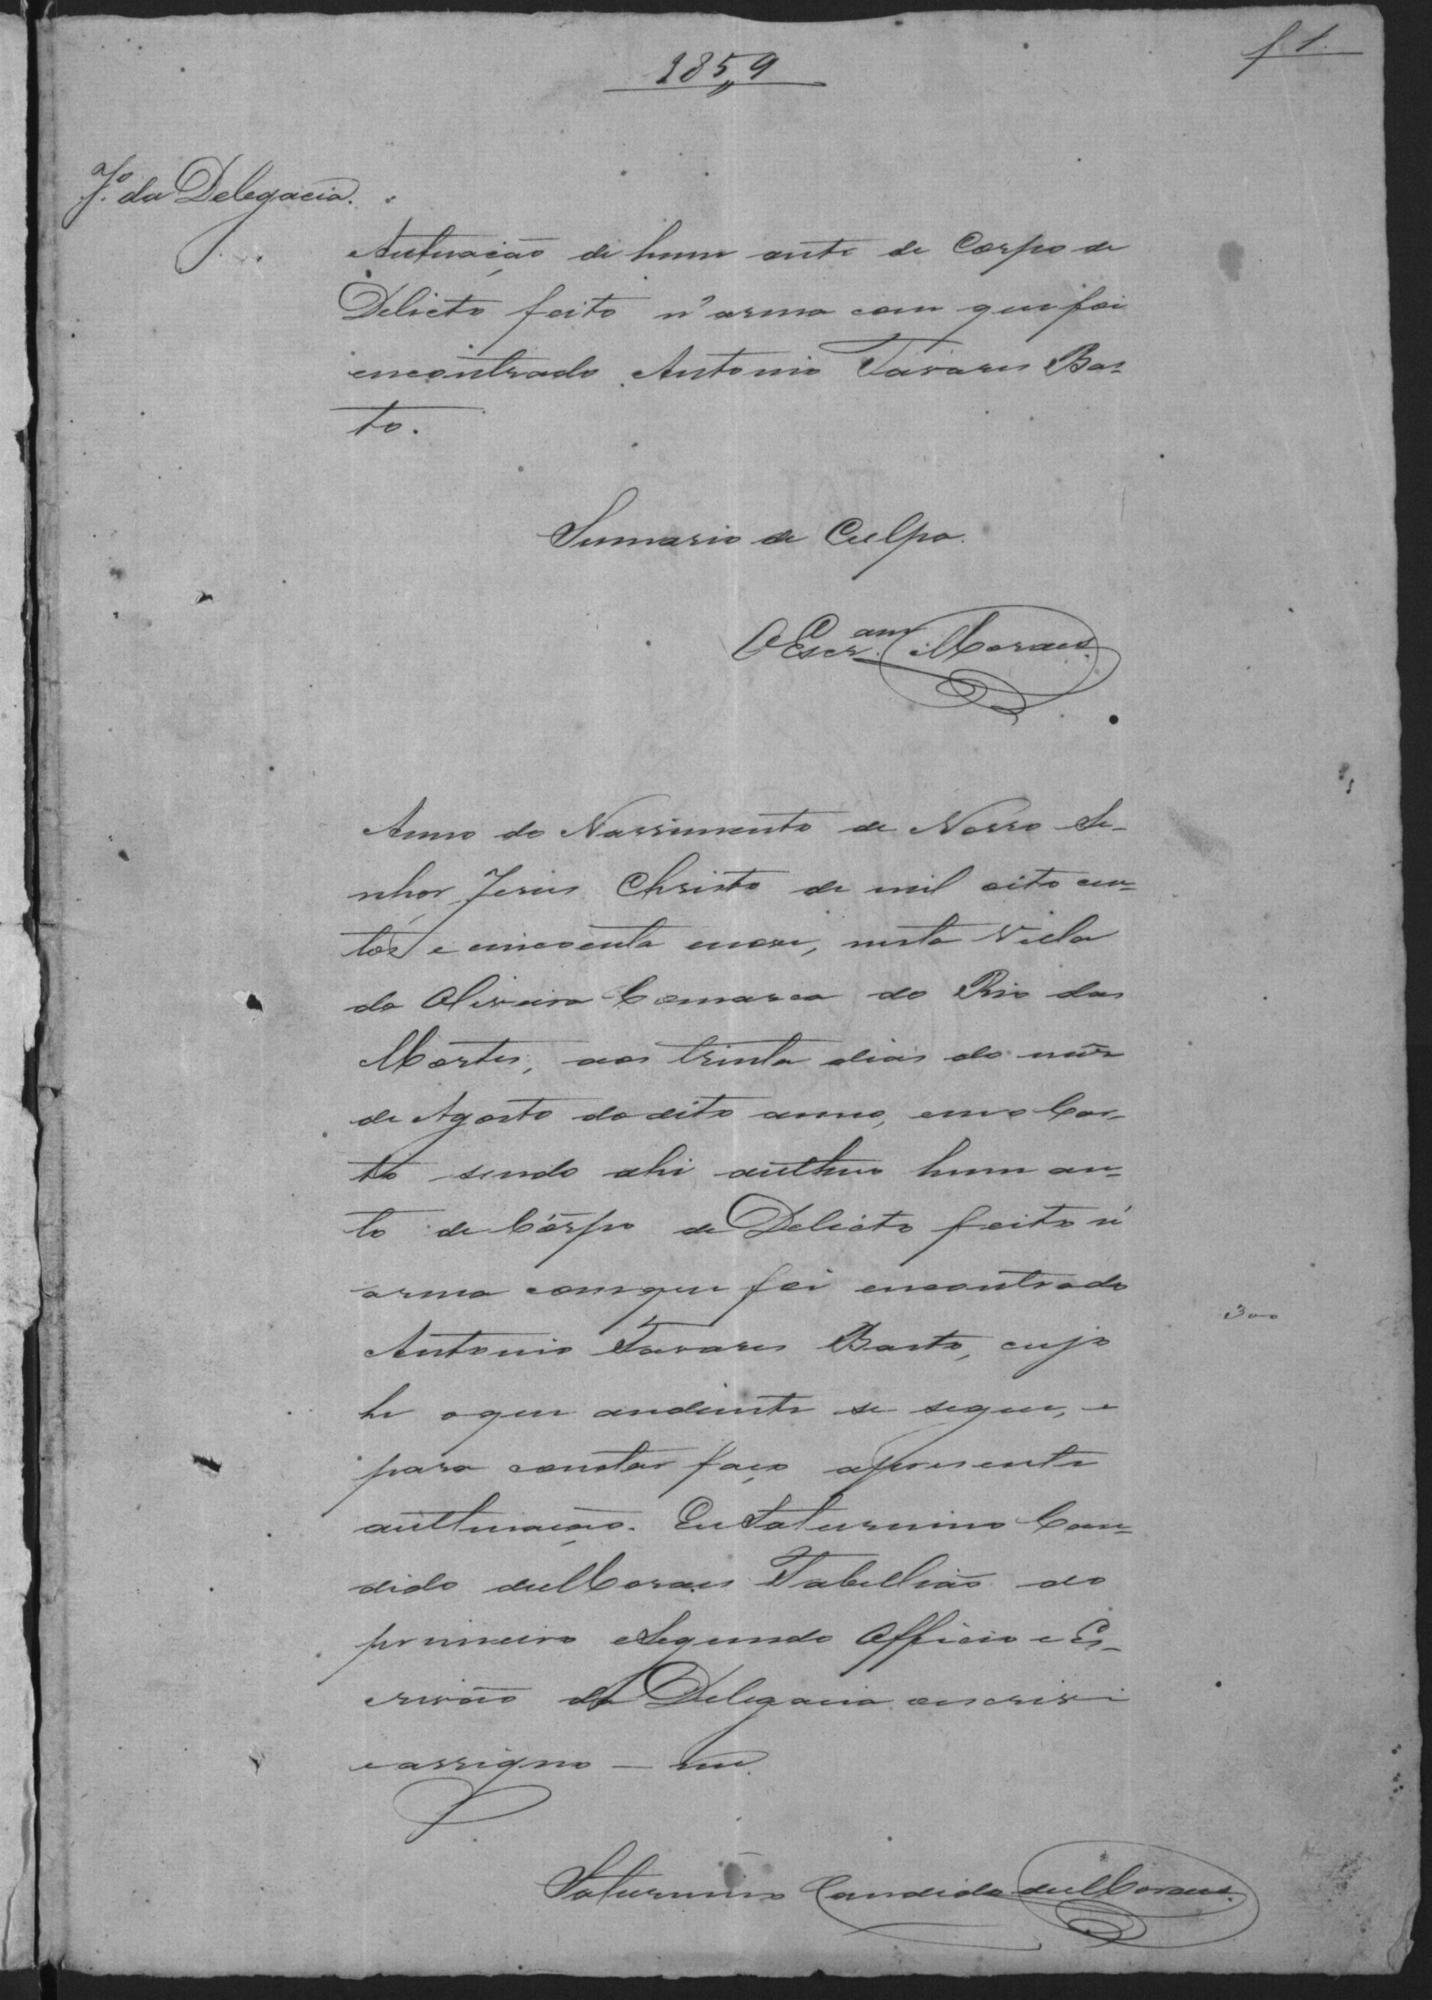 1859
f 1.
Jo. da Delegacia.
Autuação de hum auto de Corpo de
Delicto feito n'arma com que foi
encontrado Antonio Tavares Bas-
to.
Summario de Culpa.
O Escram. Moraes.
Anno do Nassimento de Nosso Se-
nhor Jesus Christo de mil oito cen-
tos e cincoenta enove, nesta Villa
da Oliveira Comarca do Rio das
Mortes, aos trinta dias do mes
de Agosto do dito anno, em o Car-
to sendo ahi authuo hum au-
to de Corpo de Delicto feito n'
arma comque foi encontrado
300
Antonio Tavares Basto, cujo
he oque andiente se segue, e
para constar faço apresente
authuação. Eu Saturnino Can-
dido deMoraes Tabellião do
primeiro eSegundo Officio e Es-
crivão da Delegacia oescrivi
eassigno — me
Saturnino Candido deMoraes.